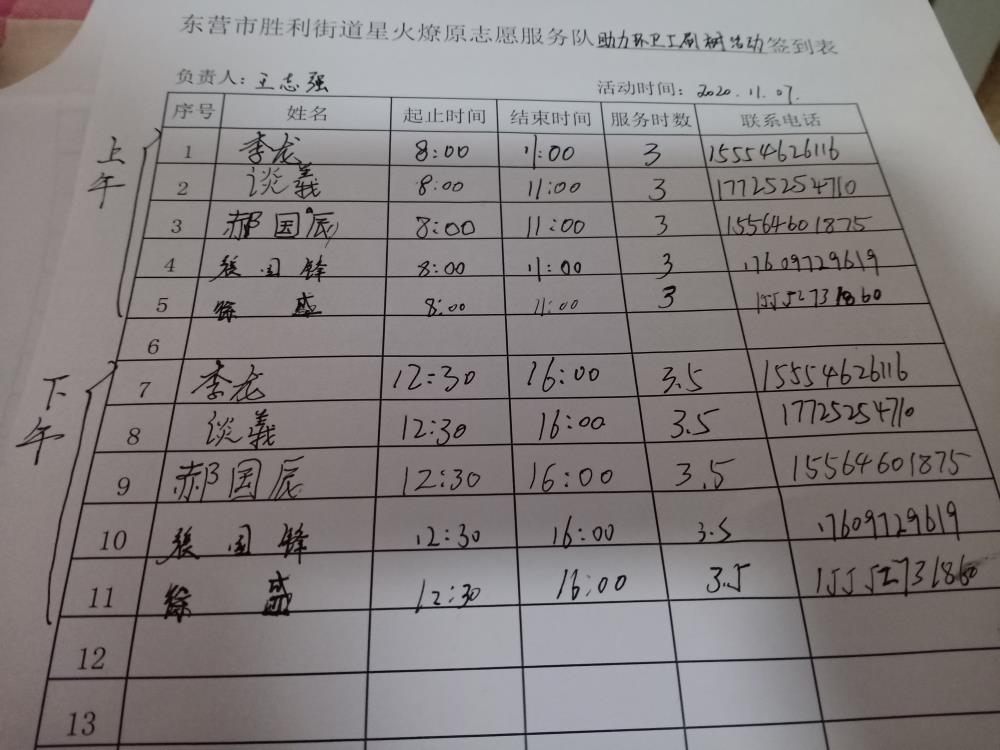 东营市胜利街道星火燎原志愿服务队助力环卫工刷树活动签到表
负责人：王志强 活动时间：2020.11.07.
序号 姓名 起止时间 结束时间 服务时数 联系电话
上午
1 李龙 8:00 11:00 3 15554626116
2 谈義 8:00 11:00 3 17725254710
3 郝国辰 8:00 11:00 3 15564601875
4 张国锋 8:00 11:00 3 17609729619
5 徐盛 8:00 11:00 3 15552731860
6
下午
7 李龙 12:30 16:00 3.5 15554626116
8 谈義 12:30 16:00 3.5 17725254710
9 郝国辰 12:30 16:00 3.5 15564601875
10 张国锋 12:30 16:00 3.5 17609729619
11 徐盛 12:30 16:00 3.5 15552731860
12
13